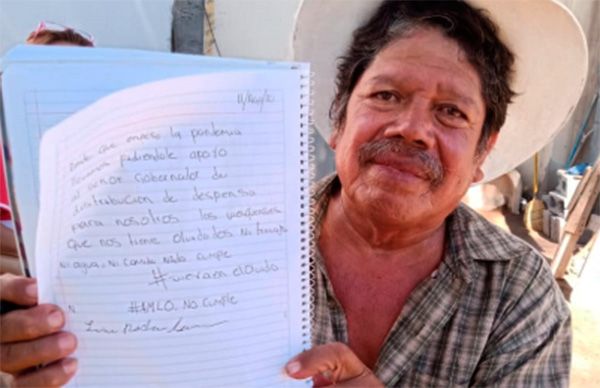 11/Mayo/20
Desde que empeso la pandemia
llevamos pidiendole apoyo
al señor Gobernador de
distribucion de despensa
para nosotros los
que nos tiene olvidados No trabajo
Ni agua. Ni Comida Nada Cumple
#
#AMLO. No Cumple